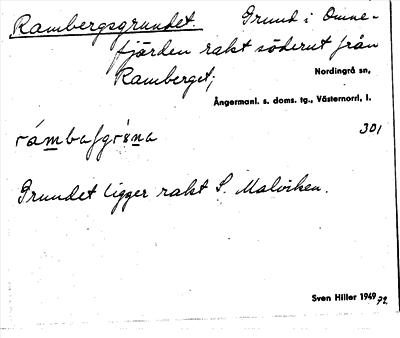 Rambergsgrundet. Grund i Omne-
fjärden rakt söderut från
Ramberget;
Nordingrå sn,
Ångermanl. s. doms. tg., Västernorrl, l.
301
Grundet ligger rakt S. Malviken.
Sven Hiller 1949 72.